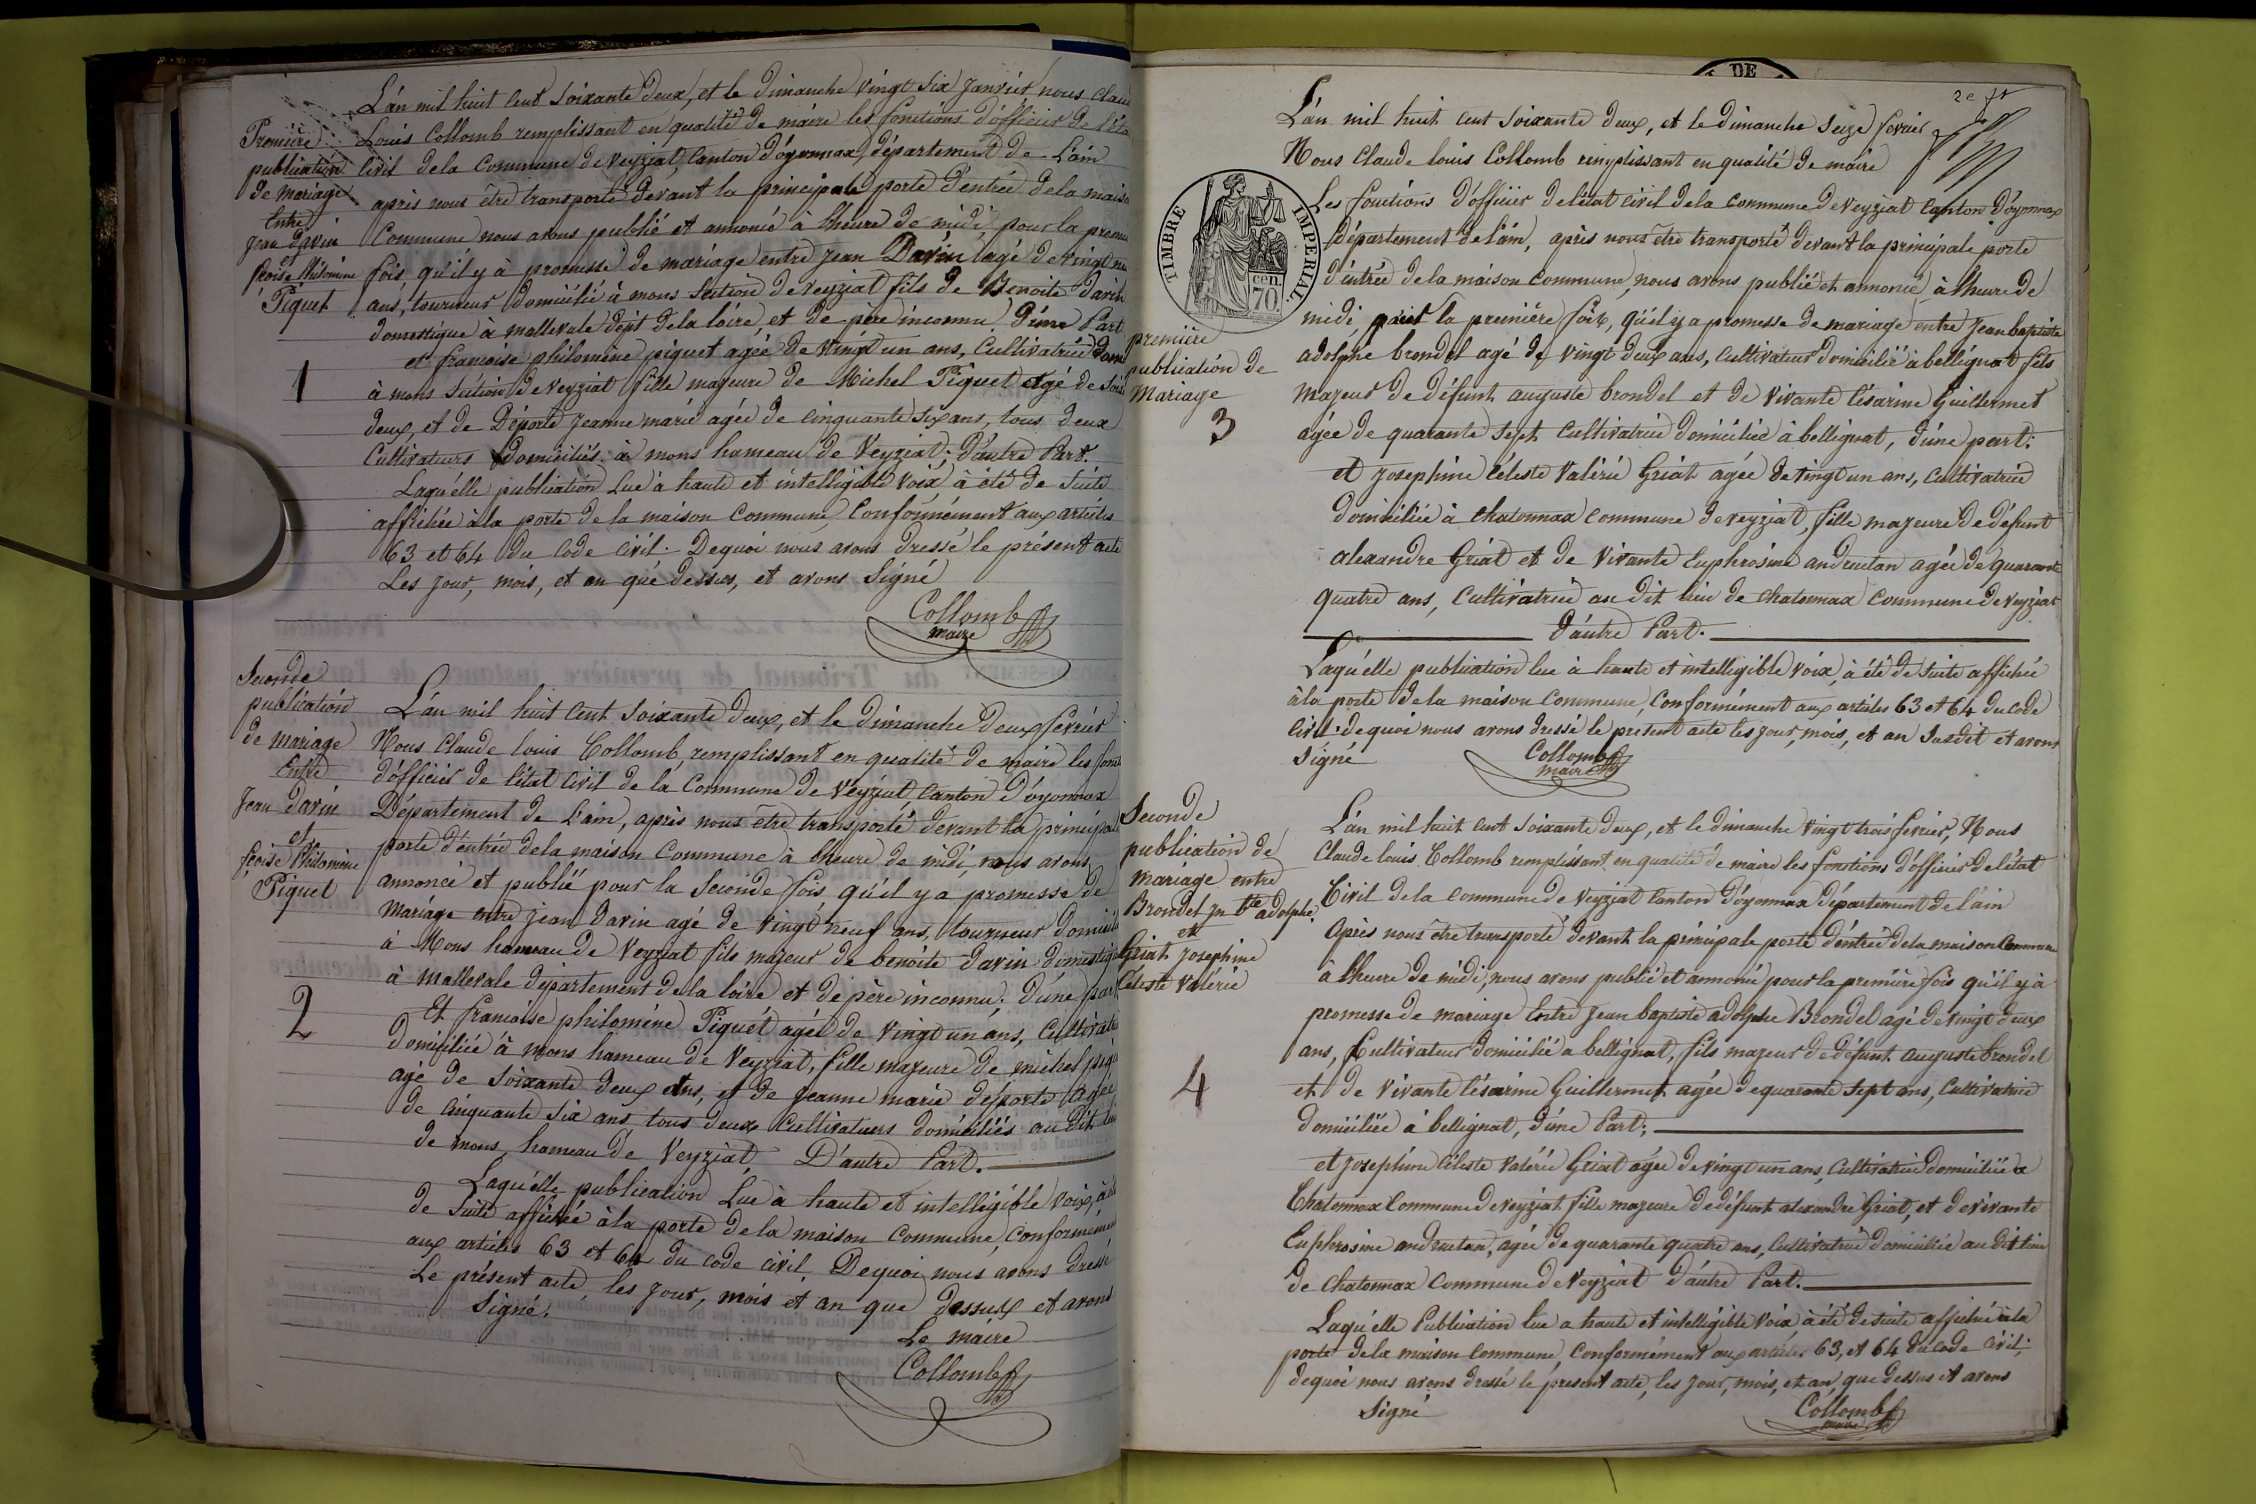 Première
publication
de mariage
Entre
Jean davin
et
fcoise Philomène
Piquet
1
L'an mil huit cent soixante deux, et le dimanche vingt six janvier nous Claude
Louis Collomb remplissant en qualité de maire les fonctions d'officier de l'éta
Civil dela Commune de Veyziat, Canton d'oyonnax, département de L'ain
après nous être transporté devant la principale porte d'entrée dela maison
Commune nous avons publié et annoncé à l'heure de midi pour la premi
fois, qu'il y à promesse de mariage entre jean Davin agé de vingt ne
ans, tourneur domicilié à mons Section de veyziat fils de Benoite davin
domestique à mallevale dept dela loire, et de père inconnu. D'une Part
et francoise philomène piquet agée de vingt un ans, Cultivatrice Domi
à mons section de veyziat fille majeure de Michel Piquet agé de Soix
deux, et de Déporte Jeanne marie agée de cinquante six ans, tous deux
Cultivateurs domiciliés à mons hameau de Veyziat, d'autre Part.
Laquelle publication Lue à haute et intelligible voix à été de suite
affichée à la porte de la maison Commune Conformément aux articles
63 et 64 du Code Civil. Dequoi nous avons dressé le présent acte
Les jour, mois, et an que dessus, et avons Signé
Collomb
maire
Seconde
publication
de mariage
Entre
Jean davin
et
fcoise Philomène
Piquet
2
L'an mil huit Cent Soixante deux, et le dimanche deux fevrier
Nous Claude louis Collomb, remplissant en qualité de maire les fonc
d'officier de l'état Civil de la Commune de Veyziat Canton d'oyonnax
Département de L'ain, après nous être transporté devant la principal
porte d'éntrée dela maison Commune à l'heure de midi, nous avons
annoncé et publié pour la Seconde fois qu'il y a promesse de
Mariage entre jean Davin agé de vingt neuf ans, tourneur domicilié
à Mons hameau de Veyziat fils majeur de benoite davin domestique
à mallevale département dela loire et de père inconnu; d'une part
Et francoise philomène Piquet agée de vingt un ans, Cultivatri
domiciliée à mons hameau de Veyziat, fille majeure de michel piq
agé de Soixante deux ans, et de jeanne marie deporte agée
de cinquante six ans tous deux Cultivateurs domiciliés au dit lie
de mons, hameau de Veyziat D'autre Part.
Laquelle publication Lue à haute et intelligible voix, à été
de suite affichée à la porte de la maison Commune, Conformémen
aux articles 63 et 64 du Code Civil. Dequoi nous avons dressé
Le présent acte, les jour, mois et an que dessus et avons
Signé.
Le maire
Collomb
DE
2e ft
TIMBRE IMPERIAL.
cen.
70.
première
publication de
Mariage
3
L'an mil huit cent soixante deux, et le dimanche seize fevrier
Nous Claude louis Collomb remplissant en qualité de maire
Les fonctions d'officier de l'état civil dela commune de Veyziat Canton d'oyonnax
département de l'ain, après nous être transporté devant la principale porte
d'éntrée dela maison Commune, nous avons publié et annoncé à l'heure de
midi, pour la première fois, qu'il y a promesse de mariage entre jean baptiste
adolphe brondel agé de vingt deux ans, Cultivateur domicilié à bellignat fils
Majeur de défunt auguste brondel et de vivante Césarine Guillermet
agée de quarante sept Cultivatrice domiciliée à bellignat, d'une part:
et josephine Céleste Valérie Griat agée de vingt un ans, Cultivatrice
domiciliée à Chatonnax Commune de veyziat, fille majeure de défunt
alexandre Griat et de vivante Euphrosine andruetan agée de quarante
quatre ans, Cultivatrice au dit lieu de Chatonnax Commune de Veyziat
d'autre Part.
Laquelle publication lue à haute et intelligible voix, à été de suite affichée
à la porte dela maison Commune, Conformément aux articles 63 et 64 du Code
Civil. dequoi nous avons dressé le présent acte les jour, mois, et an susdit et avons
Signé
Collomb
maire
Seconde
publication de
mariage entre
Brondel jn bte adolphe
et
Griat josephine
Céleste Valérie
4
L'an mil huit cent soixante deux, et le dimanche vingt trois fevrier, Nous
Claude louis Collomb remplissant en qualité de maire les fonctions d'officier de l'état
Civil dela commune de Veyziat Canton d'oyonnax département de l'ain
Après nous être transporté devant la principale porte d'éntrée dela maison Commune
à l'heure de midi, nous avons publié et annoncé pour la première fois qu'il y à
promesse de mariage Entre jean baptiste adolphe Brondel agé de vingt deux
ans, Cultivateur domicilié a bellignat, fils majeur de défunt auguste brondel
et de vivante Césarine Guillermet agée de quarante sept ans, Cultivatrice
domiciliée à bellignat, d'une Part;
et josephine Céleste Valérie Griat agée de vingt un ans, Cultivatrice domiciliée à
Chatonnax Commune de veyziat fille majeure de défunt alexandre Griat, et de vivante
Euphrosine andruetan, agée de quarante quatre ans, Cultivatrice domiciliée au dit lieu
de Chatonnax Commune de Veyziat d'autre Part.
Laquelle Publication lue a haute et intelligible voix, à été de suite affichée à la
porte dela maison Commune, Conformément aux articles 63, et 64 du Code Civil;
dequoi nous avons dressé le présent acte, les jour, mois, et an, que dessus et avons
Signé
Collomb
maire